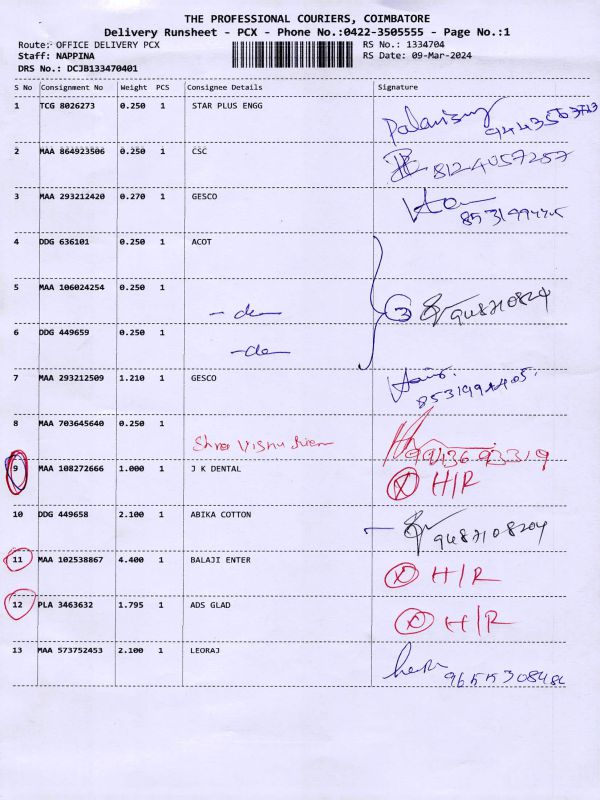 THE PROFESSIONAL COURIERS, COIMBATORE
Delivery Runsheet - PCX - Phone No.:0422-3505555 - Page No.:1
Route: OFFICE DELIVERY PCX RS No.: 1334704
Staff: NAPPINA RS Date: 09-Mar-2024
DRS No.: DCJB133470401
S No Consignment No Weight PCS Consignee Details Signature
1 TCG 8026273 0.250 1 STAR PLUS ENGG
2 MAA 864923506 0.250 1 CSC 8124057257
3 MAA 293212420 0.270 1 GESCO
4 DDG 636101 0.250 1 ACOT
5 MAA 106024254 0.250 1 - do 3
6 DDG 449659 0.250 1 - do
7 MAA 293212509 1.210 1 GESCO
8 MAA 703645640 0.250 1 9943693319
9 MAA 108272666 1.000 1 J K DENTAL X H/R
10 DDG 449658 2.100 1 ABIKA COTTON 9487108204
11 MAA 102538867 4.400 1 BALAJI ENTER X H/R
12 PLA 3463632 1.795 1 ADS GLAD X H/R
13 MAA 573752453 2.100 1 LEORAJ